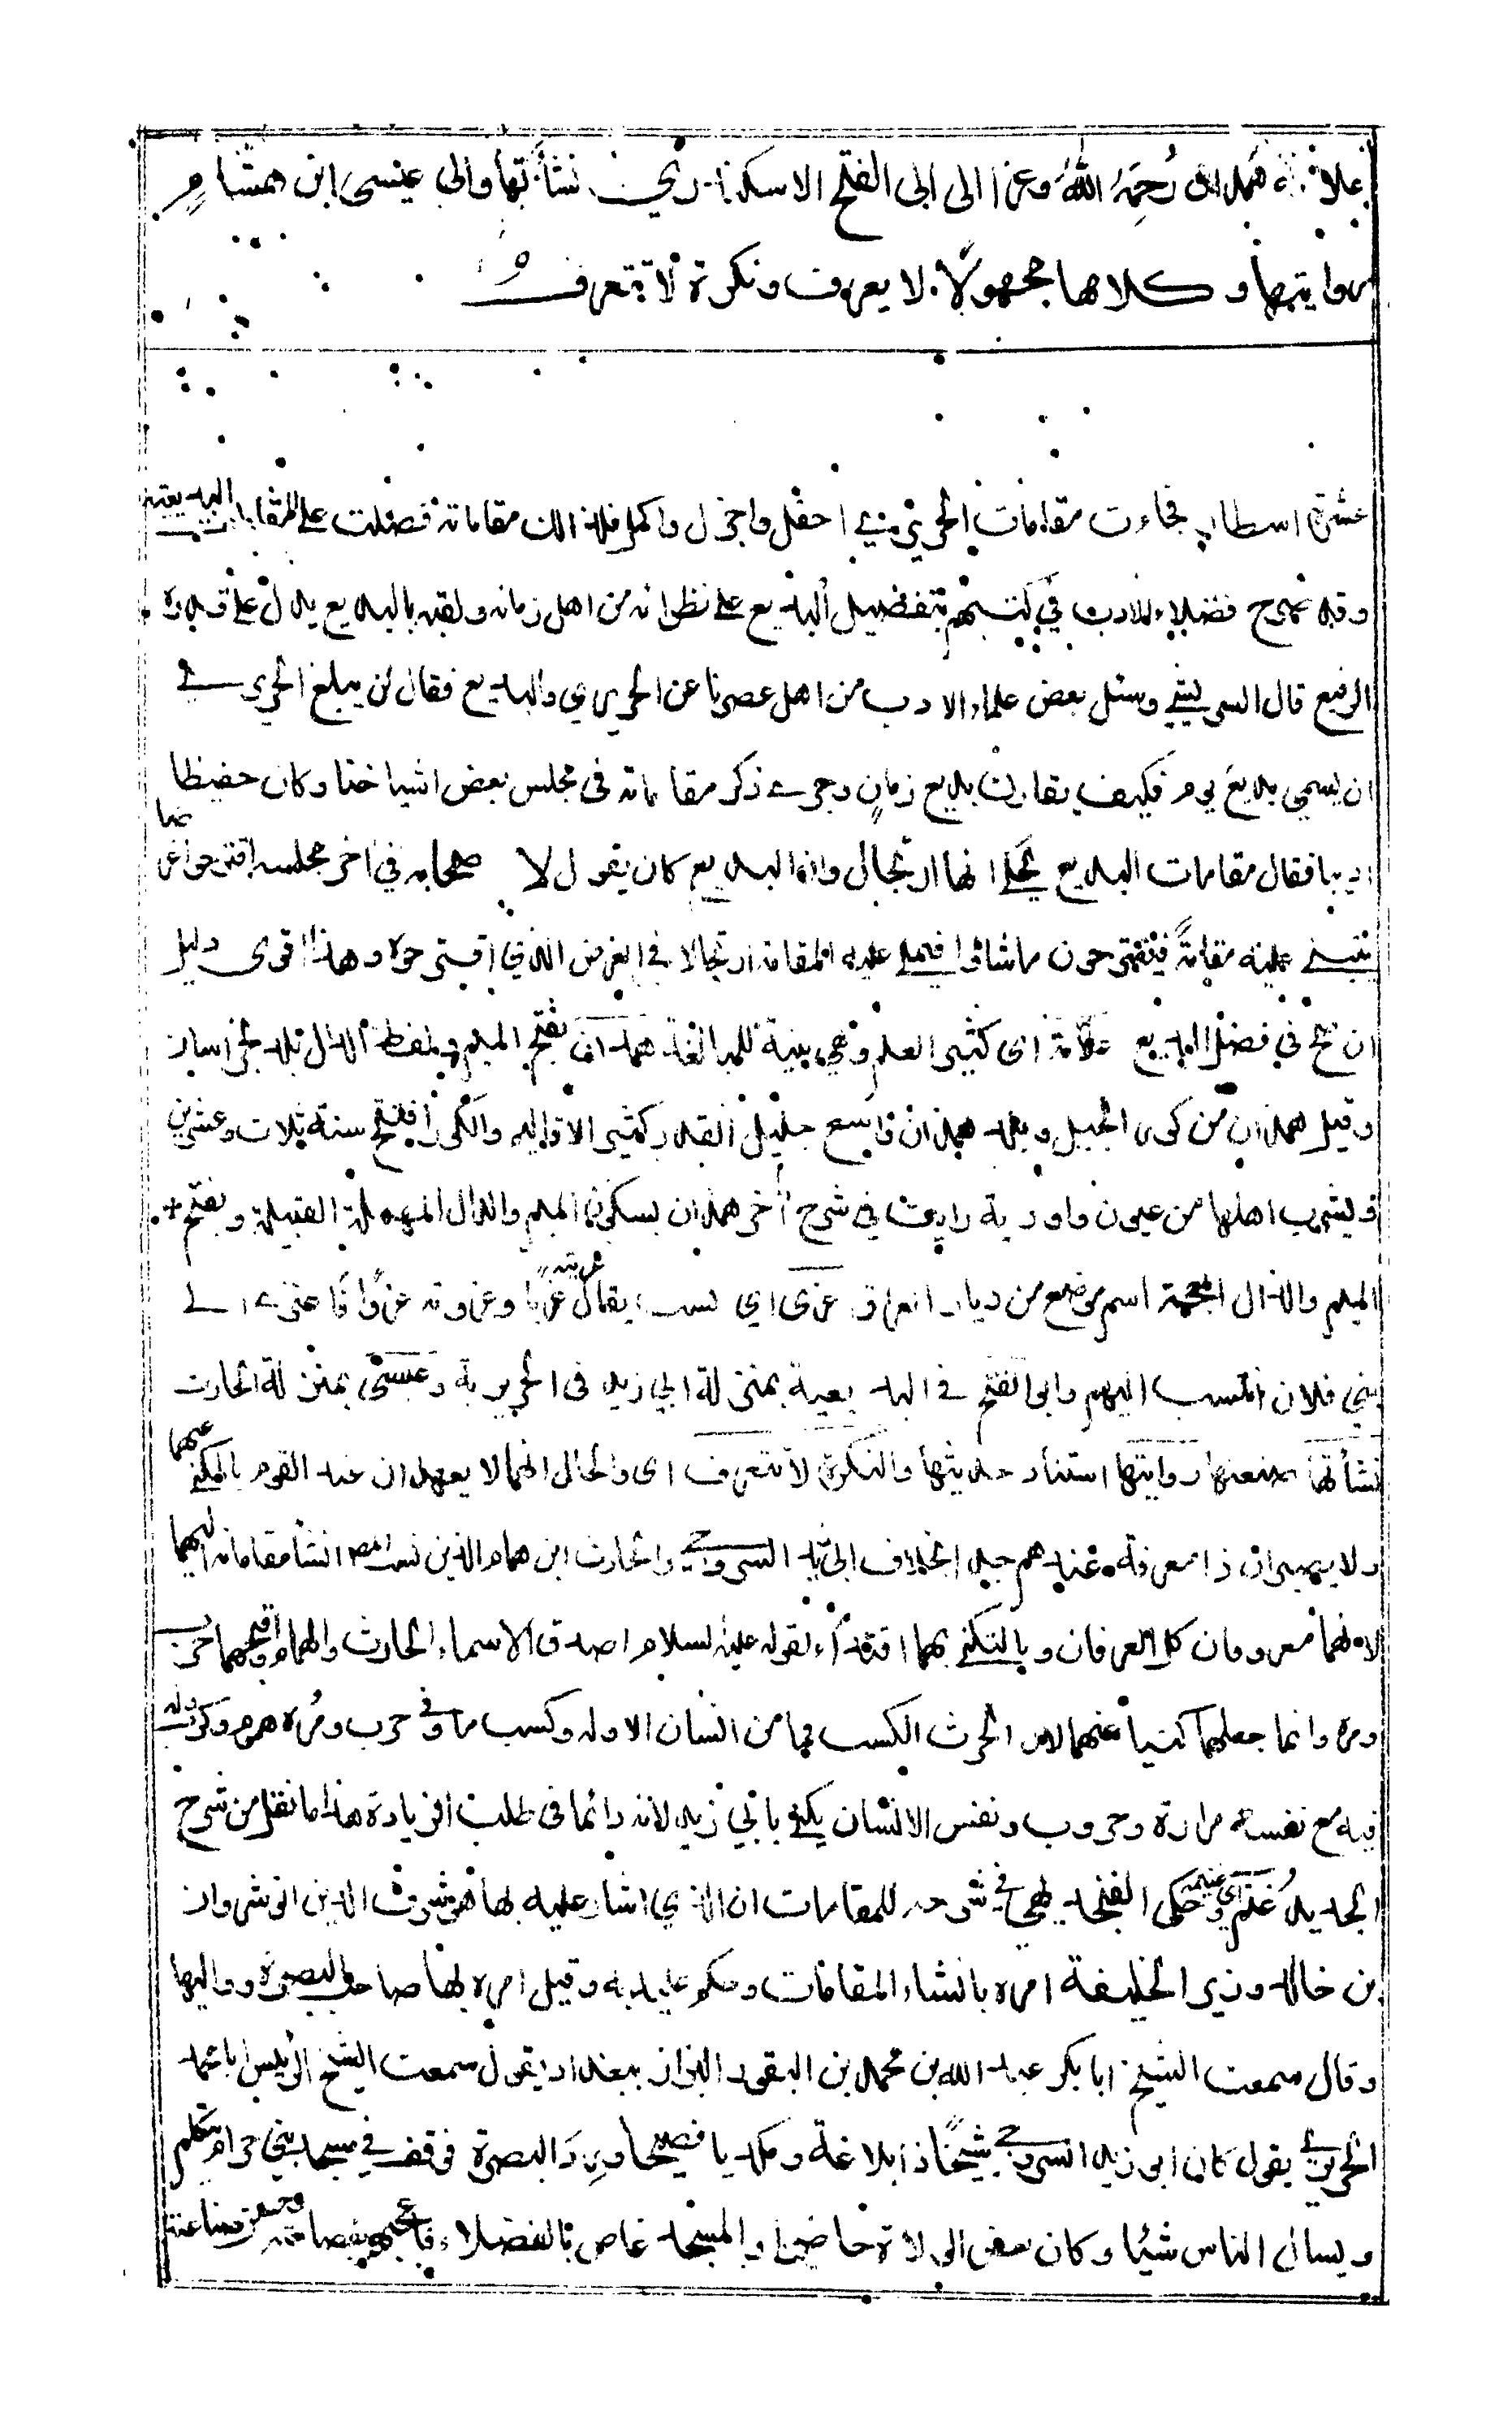 علامة همدان رَحِمَهُ اللّٰهُ وعزا الى ابى الفتح الاسكندري نشأتها والى عيسى ابن هشامٍ
روايتها وكلاهما مجهولٌ لا يعرف ونكرة لا تتعرف
عشرة اسطار فجاءت مقامات الحريري احفل واجزل واكمل فلذالك مقاماته فضلت على المقامات البديعية
وقد صرح فضلاء الادب في كتبهم بتفضيل البديع على نظرائه من اهل زمانه ولقبه بالبديع يدل على قدره
الرفيع قال الشريشي وسئل بعض علماء الادب من اهل عصرنا عن الحريري والبديع فقال لن يبلغ الحريري
ان يسمى بديع يوم فكيف يقارن بديع زمانٍ وجرى ذكر مقاماته فى مجلس بعض اشياخنا وكان حفيظا
اديبا فقال مقامات البديع يحكى انها ارتجال وان البديع كان يقول لاصحابه في اخر مجلسه اقترحوا غرضا
نبنى عليه مقامةً فيقترحون ما شاؤا فيملى عليهم المقامة ارتجالا في الغرض الذي اقترحوه وهذا اقوى دليل
ان صح في فضل البديع علامة اى كثير العلم وهي بنية للمبالغة همدان بفتح الميم وبلفظ الذال بلد بخراسان
وقيل همذان من كور الجبل وبلد همذان واسع جليل القدر كثير الاقاليم والكور افتتح سنة ثلاث وعشرين
ويشرب اهلها من عيون واودية رايت في شرح آخر همدان بسكون الميم والدال المهملة القبيلة وبفتح
الميم والذال المعجمة اسم موضع من ديار العراق عزى اي نسب يقال عزيته عزيا وعزوته عزوًا اعتزى الى
بني فلان انتسب اليهم وابو الفتح فى البديعية بمنزلة ابي زيد فى الحريرية وعيسى بمنزلة الحارث
نشأتها صنعتها روايتها استناد حديثها والنكرة لا تتعرف اى والحال انهما لا يعهدان عند القوم بالمكنى عنهما
ولا يصيران ذا معرفة عندهم جدا بخلاف ابى زيد السروجي والحارث ابن همام الذين نسب المصـ انشأ مقاماته اليهما
لانهما معروفان كل العرفان وبالتكنى بهما اقتداء لقوله عليه السلام اصدق الاسماء الحارث والهمام واقبحهما حرب
ومرة وانما جعلهما كنيا عنهما لان الحرث الكسب فما من انسان الا وله وكسب ما وفى حرب ومُرة هم وكد وله
فيه مع نفسه مرارة وحروب ونفس الانسان يكنى بابي زيد لانه دائما فى طلب الزيادة هذا ما نقل من شرح
الجديد غُنم اى غنيمة وحكى الفنجديهى في شرحه للمقامات ان الذي اشار عليه بها هو شرف الدين انوشروان
بن خالد وزير الخليفة امره بانشاء المقامات وحكم عليه به وقيل امره بها صاحب البصرة وواليها
وقال سمعت الشيخ ابا بكر عبد الله بن محمد بن النقور البزاز ببغداد يقول سمعت الشيخ الرئيس ابا محمد
الحريري يقول كان ابو زيد السروجي شيخًا ذا بلاغة ومكديا فصيحا ورد البصرة فوقف في مسجد بني حرام يتكلم
ويسأل الناس شيئا وكان بعض الولاة حاضرا والمسجد غاص بالفضلاء فاعجبهم بفصاحته وحسن صناعته